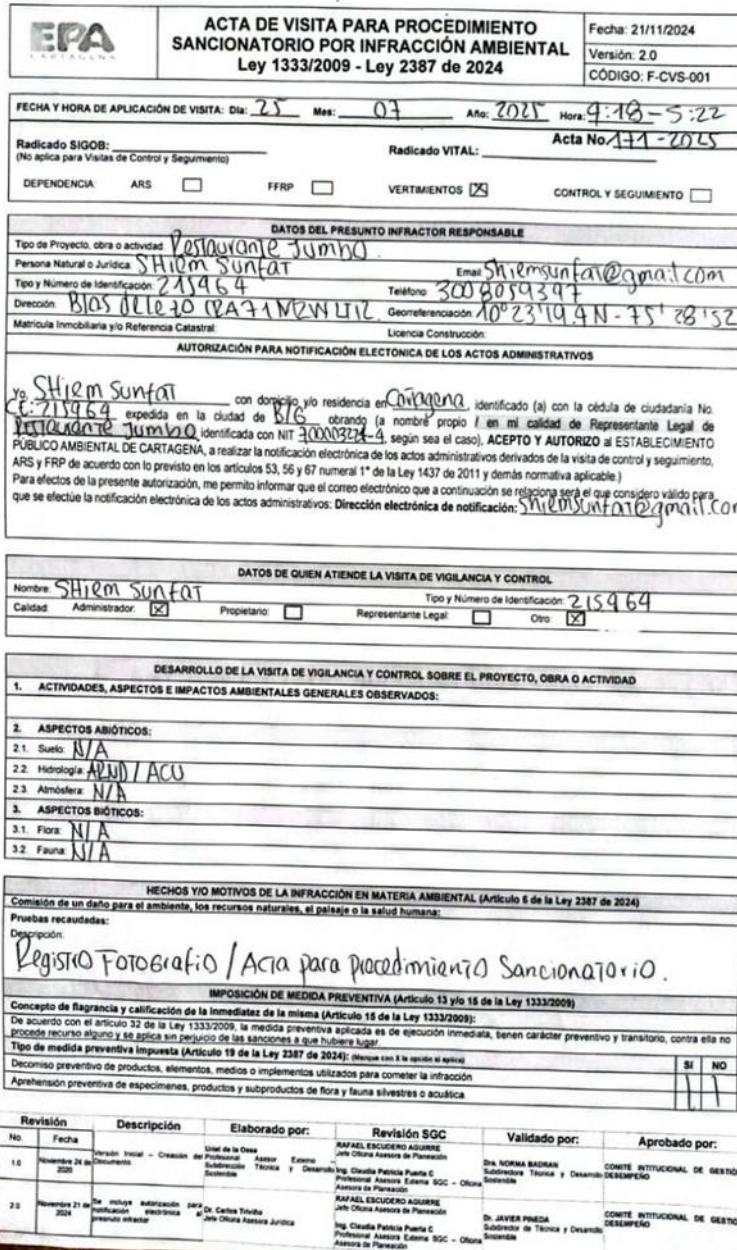 EPA
CARTAGENA
ACTA DE VISITA PARA PROCEDIMIENTO
SANCIONATORIO POR INFRACCIÓN AMBIENTAL
Ley 1333/2009 - Ley 2387 de 2024
Fecha: 21/11/2024
Versión: 2.0
CÓDIGO: F-CVS-001
FECHA Y HORA DE APLICACIÓN DE VISITA: Dia: 25 Mes: 07 Año: 2025 Hora: 9:18-5:22
Radicado SIGOB:
(No aplica para Visitas de Control y Seguimiento)
Radicado VITAL:
Acta No. 171-2025
DEPENDENCIA: ARS FFRP VERTIMIENTOS X CONTROL Y SEGUIMIENTO
DATOS DEL PRESUNTO INFRACTOR RESPONSABLE
Tipo de Proyecto, obra o actividad: Restaurante Jumbo.
Persona Natural o Jurídica: SHiem Sunfat Email: Shiemsunfat@gmail.com
Tipo y Número de Identificación: 215964 Teléfono: 3008059397
Dirección: Blas de lezo CRA71 Georreferenciación: 10°23'19.4N-75°28'52
Matricula Inmobiliaria y/o Referencia Catastral: Licencia Construcción:
AUTORIZACIÓN PARA NOTIFICACIÓN ELECTÓNICA DE LOS ACTOS ADMINISTRATIVOS
yo, SHiem Sunfat con domicilio y/o residencia en Cartagena, identificado (a) con la cédula de ciudadanía No.
CE: 215964 expedida en la ciudad de B/G obrando (a nombre propio / en mi calidad de Representante Legal de
Restaurante Jumbo identificada con NIT según sea el caso), ACEPTO Y AUTORIZO al ESTABLECIMIENTO
PÚBLICO AMBIENTAL DE CARTAGENA, a realizar la notificación electrónica de los actos administrativos derivados de la visita de control y seguimiento,
ARS y FRP de acuerdo con lo previsto en los artículos 53, 56 y 67 numeral 1° de la Ley 1437 de 2011 y demás normativa aplicable.)
Para efectos de la presente autorización, me permito informar que el correo electrónico que a continuación se relaciona será el que considero válido para
que se efectúe la notificación electrónica de los actos administrativos: Dirección electrónica de notificación: Shiemsunfat@gmail.com
DATOS DE QUIEN ATIENDE LA VISITA DE VIGILANCIA Y CONTROL
Nombre: SHiem Sunfat Tipo y Número de Identificación: 215964
Calidad: Administrador: X Propietario: Representante Legal: Otro: X
DESARROLLO DE LA VISITA DE VIGILANCIA Y CONTROL SOBRE EL PROYECTO, OBRA O ACTIVIDAD
1. ACTIVIDADES, ASPECTOS E IMPACTOS AMBIENTALES GENERALES OBSERVADOS:
2. ASPECTOS ABIÓTICOS:
2.1. Suelo: N/A
2.2. Hidrología: ARND / ACU
2.3. Atmósfera: N/A
3. ASPECTOS BIÓTICOS:
3.1. Flora: N/A
3.2. Fauna: N/A
HECHOS Y/O MOTIVOS DE LA INFRACCIÓN EN MATERIA AMBIENTAL (Artículo 6 de la Ley 2387 de 2024)
Comisión de un daño para el ambiente, los recursos naturales, el paisaje o la salud humana:
Pruebas recaudadas:
Descripción:
Registro Fotografio / Acta para procedimiento Sancionatorio.
IMPOSICIÓN DE MEDIDA PREVENTIVA (Artículo 13 y/o 15 de la Ley 1333/2009)
Concepto de flagrancia y calificación de la inmediatez de la misma (Artículo 15 de la Ley 1333/2009):
De acuerdo con el artículo 32 de la Ley 1333/2009, la medida preventiva aplicada es de ejecución inmediata, tienen carácter preventivo y transitorio, contra ella no
procede recurso alguno y se aplica sin perjuicio de las sanciones a que hubiere lugar.
Tipo de medida preventiva impuesta (Artículo 19 de la Ley 2387 de 2024): (Marque con X la opción si aplica) SI NO
Decomiso preventivo de productos, elementos, medios o implementos utilizados para cometer la infracción
Aprehensión preventiva de especímenes, productos y subproductos de flora y fauna silvestres o acuática.
Revisión Descripción Elaborado por: Revisión SGC Validado por: Aprobado por:
No. Fecha
1.0 Noviembre 24 de 2020 Versión Inicial – Creación del Documento Uriel de la Ossa Profesional Asesor Externo – Subdirección Técnica y Desarrollo Sostenible RAFAEL ESCUDERO AGUIRRE Jefe Oficina Asesora de Planeación Ing. Claudia Patricia Puerta C Profesional Asesora Externa SGC – Oficina Asesora de Planeación Dra. NORMA BADRAN Subdirectora Técnica y Desarrollo Sostenible COMITÉ INTITUCIONAL DE GESTIÓ DESEMPEÑO
2.0 Noviembre 21 de 2024 Se incluye autorización para notificación electrónica al presunto infractor Dr. Carlos Triviño Jefe Oficina Asesora Jurídica RAFAEL ESCUDERO AGUIRRE Jefe Oficina Asesora de Planeación Ing. Claudia Patricia Puerta C Profesional Asesora Externa SGC – Oficina Asesora de Planeación Dr. JAVIER PINEDA Subdirector de Técnica y Desarrollo Sostenible COMITÉ INTITUCIONAL DE GESTIÓ DESEMPEÑO